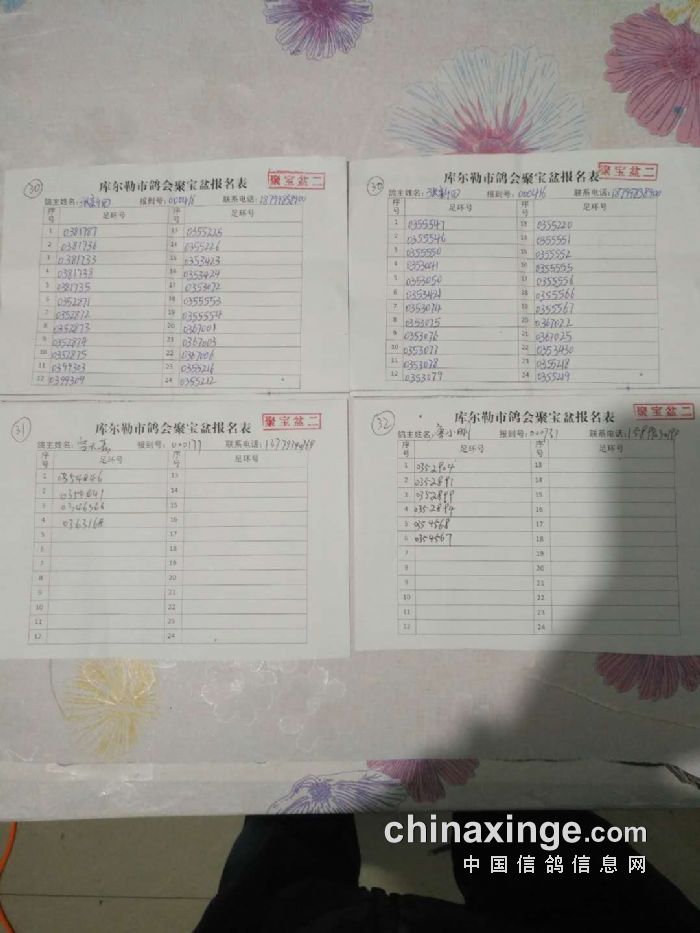 30
库尔勒市鸽会聚宝盆报名表
聚宝盆二
鸽主姓名: 报到号:000416 联系电话:
序号 足环号 序号 足环号
1 0381787 13 0355225
2 0381736 14 0355226
3 0381733 15 0353423
4 0381738 16 0353424
5 0381735 17 0353072
6 0352871 18 0355553
7 0352872 19 0355554
8 0352873 20 0367001
9 0352874 21 0367003
10 0352875 22 0367006
11 0399303 23 0355216
12 0399309 24 0355212
30
库尔勒市鸽会聚宝盆报名表
聚宝盆二
鸽主姓名: 报到号:000416 联系电话:
序号 足环号 序号 足环号
1 0355547 13 0355220
2 0355546 14 0355551
3 0355550 15 035552
4 0353041 16 0355555
5 0353050 17 0355556
6 0353421 18 0355566
7 0353074 19 0355567
8 0353075 20 0367022
9 0353076 21 0367025
10 0353077 22 0353430
11 0353078 23 0355218
12 0353079 24 0355219
31
库尔勒市鸽会聚宝盆报名表
聚宝盆二
鸽主姓名: 报到号:000177 联系电话:
序号 足环号 序号 足环号
1 13
2 14
3 15
4 0363168 16
5 17
6 18
7 19
8 20
9 21
10 22
11 23
12 24
32
库尔勒市鸽会聚宝盆报名表
聚宝盆二
鸽主姓名: 小刚 报到号: 联系电话:
序号 足环号 序号 足环号
1 0352904 13
2 0352891 14
3 0352899 15
4 0352894 16
5 0354568 17
6 0354567 18
7 19
8 20
9 21
10 22
11 23
12 24
chinaxinge.com
中国信鸽信息网